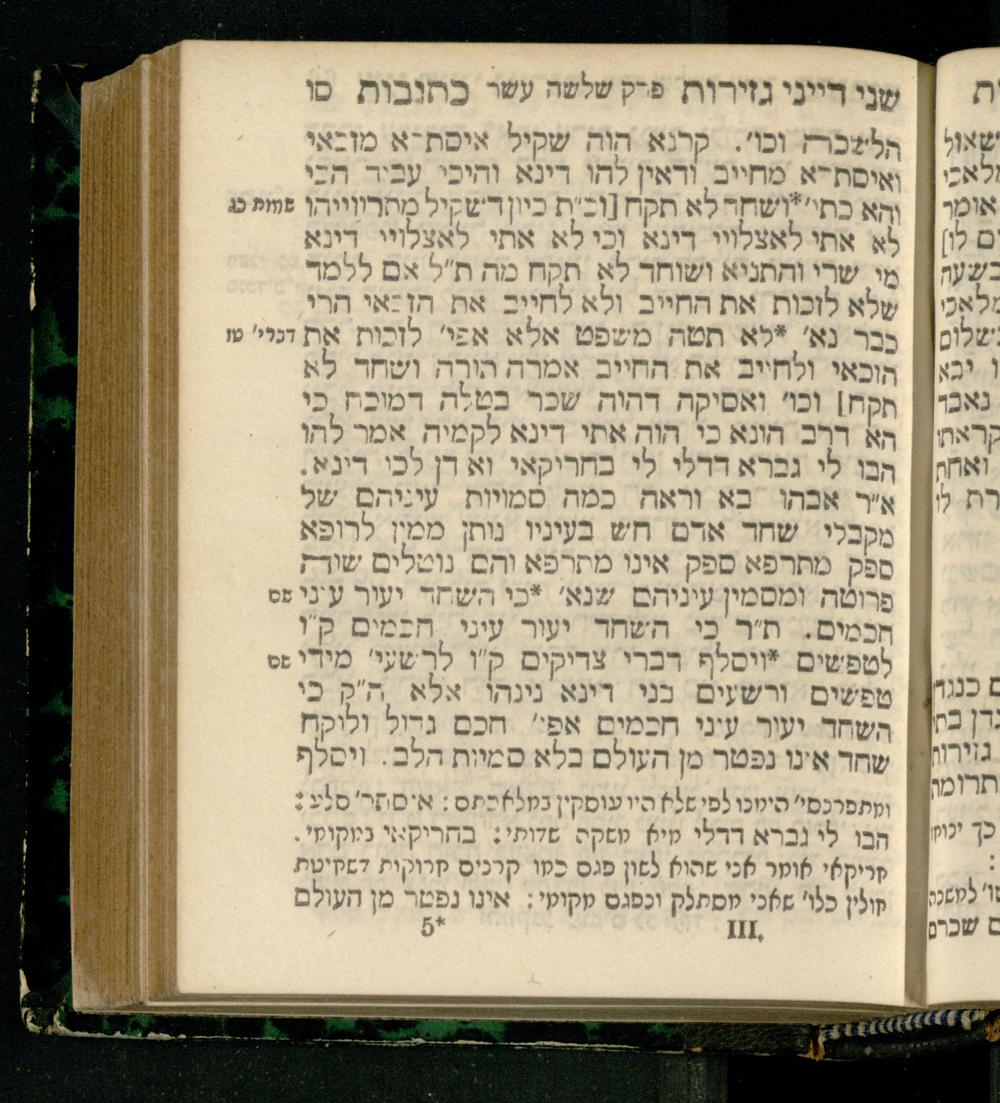 שני דייני גזירות פרק שלשה עשר כתובות סו
הלשכה וכו׳. קרנא הוה שקיל איסתרא מזכאי
ואיסתרא מחייב ודאין להו דינא והיכי עביד הכי
והא כתי׳ *ושחד לא תקח [וכ״ת כיון דשקיל מתרווייהו
שמות כג
לא אתי לאצלויי דינא וכי לא אתי לאצלויי דינא
מי שרי והתניא ושוחד לא תקח מה ת״ל אם ללמד
שלא לזכות את החייב ולא לחייב את הזכאי הרי
כבר נא׳ *לא תטה משפט אלא אפי׳ לזכות את
דברי׳ טז
הזכאי ולחייב את החייב אמרה תורה ושחד לא
תקח] וכו׳ ואסיקה דהוה שכר בטלה דמוכח כי
הא דרב הונא כי הוה אתי דינא לקמיה אמר להו
הבו לי גברא דדלי לי בחריקאי ואדון לכו דינא.
א״ר אבהו בא וראה כמה סמויות עיניהם של
מקבלי שחד אדם חש בעיניו נותן ממון לרופא
ספק מתרפא ספק אינו מתרפא והם נוטלים שוה
פרוטה ומסמין עיניהם שנא׳ *כי השחד יעור עיני
שם
חכמים. ת״ר כי השחד יעור עיני חכמים ק״ו
לטפשים *ויסלף דברי צדיקים ק״ו לרשעי׳ מידי
שם
טפשים ורשעים בני דינא נינהו אלא ה״ק כי
השחד יעור עיני חכמים אפי׳ חכם גדול ולוקח
שחד אינו נפטר מן העולם בלא סמיות הלב. ויסלף
ומתפרנסי׳ הימנו לפי שלא היו עוסקין במלאכתם: איסתר׳ סלע:
הבו לי גברא דדלי מיא משקה שדותי: בחריקאי במקומי.
חריקאי אומר אני שהוא לשון פגם כמו קרנים חרוקות דשחיטת
חולין כלו׳ שאני מסתלק ונפגם מקומי: אינו נפטר מן העולם
III. 5*